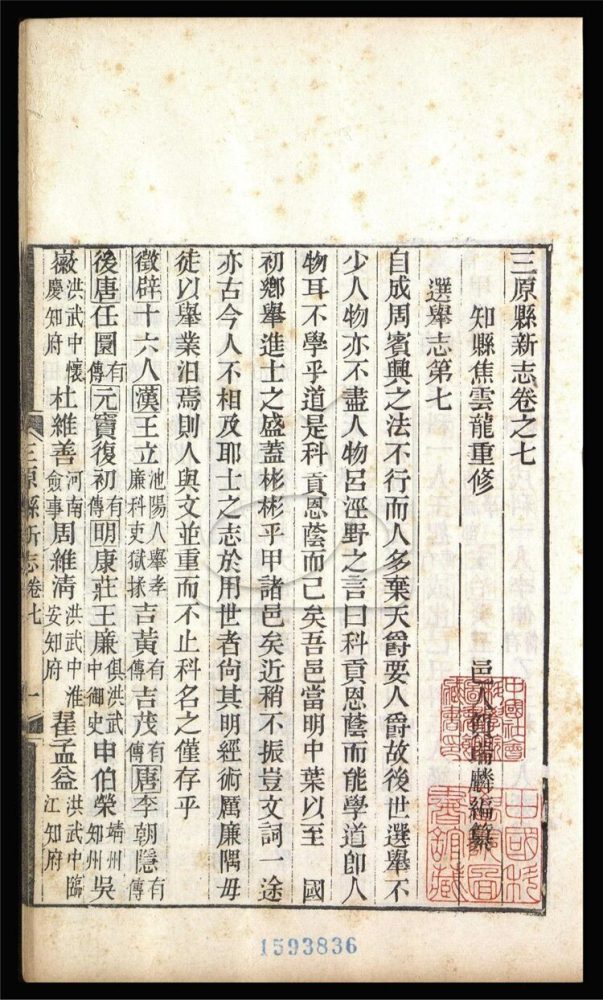 三原縣新志卷之七
知縣焦雲龍重修 邑人賀瑞麟編纂
選舉志第七
自成周賓興之法不行而人多棄天爵要人爵故後世選舉不
少人物亦不盡人物呂涇野之言曰科貢恩蔭而能學道卽人
物耳不學乎道是科貢恩蔭而已矣吾邑當明中葉以至 國
初鄉舉進士之盛蓋彬彬乎甲諸邑矣近稍不振豈文詞一途
亦古今人不相及耶士之志於用世者尙其明經術厲廉隅毋
徒以舉業汨焉則人與文並重而不止科名之僅存乎
徵辟十六人漢王立池陽人舉孝廉科吏獄掾吉黃有傳吉茂有傳唐李朝隱有傳
後唐任圜有傳元竇復初有傳明康莊王廉俱洪武中御史申伯榮靖州知州吳
徽洪武中懷慶知府杜維善河南僉事周維淸洪武中淮安知府瞿孟益洪武中臨江知府
三原縣新志 卷七 一
1593836